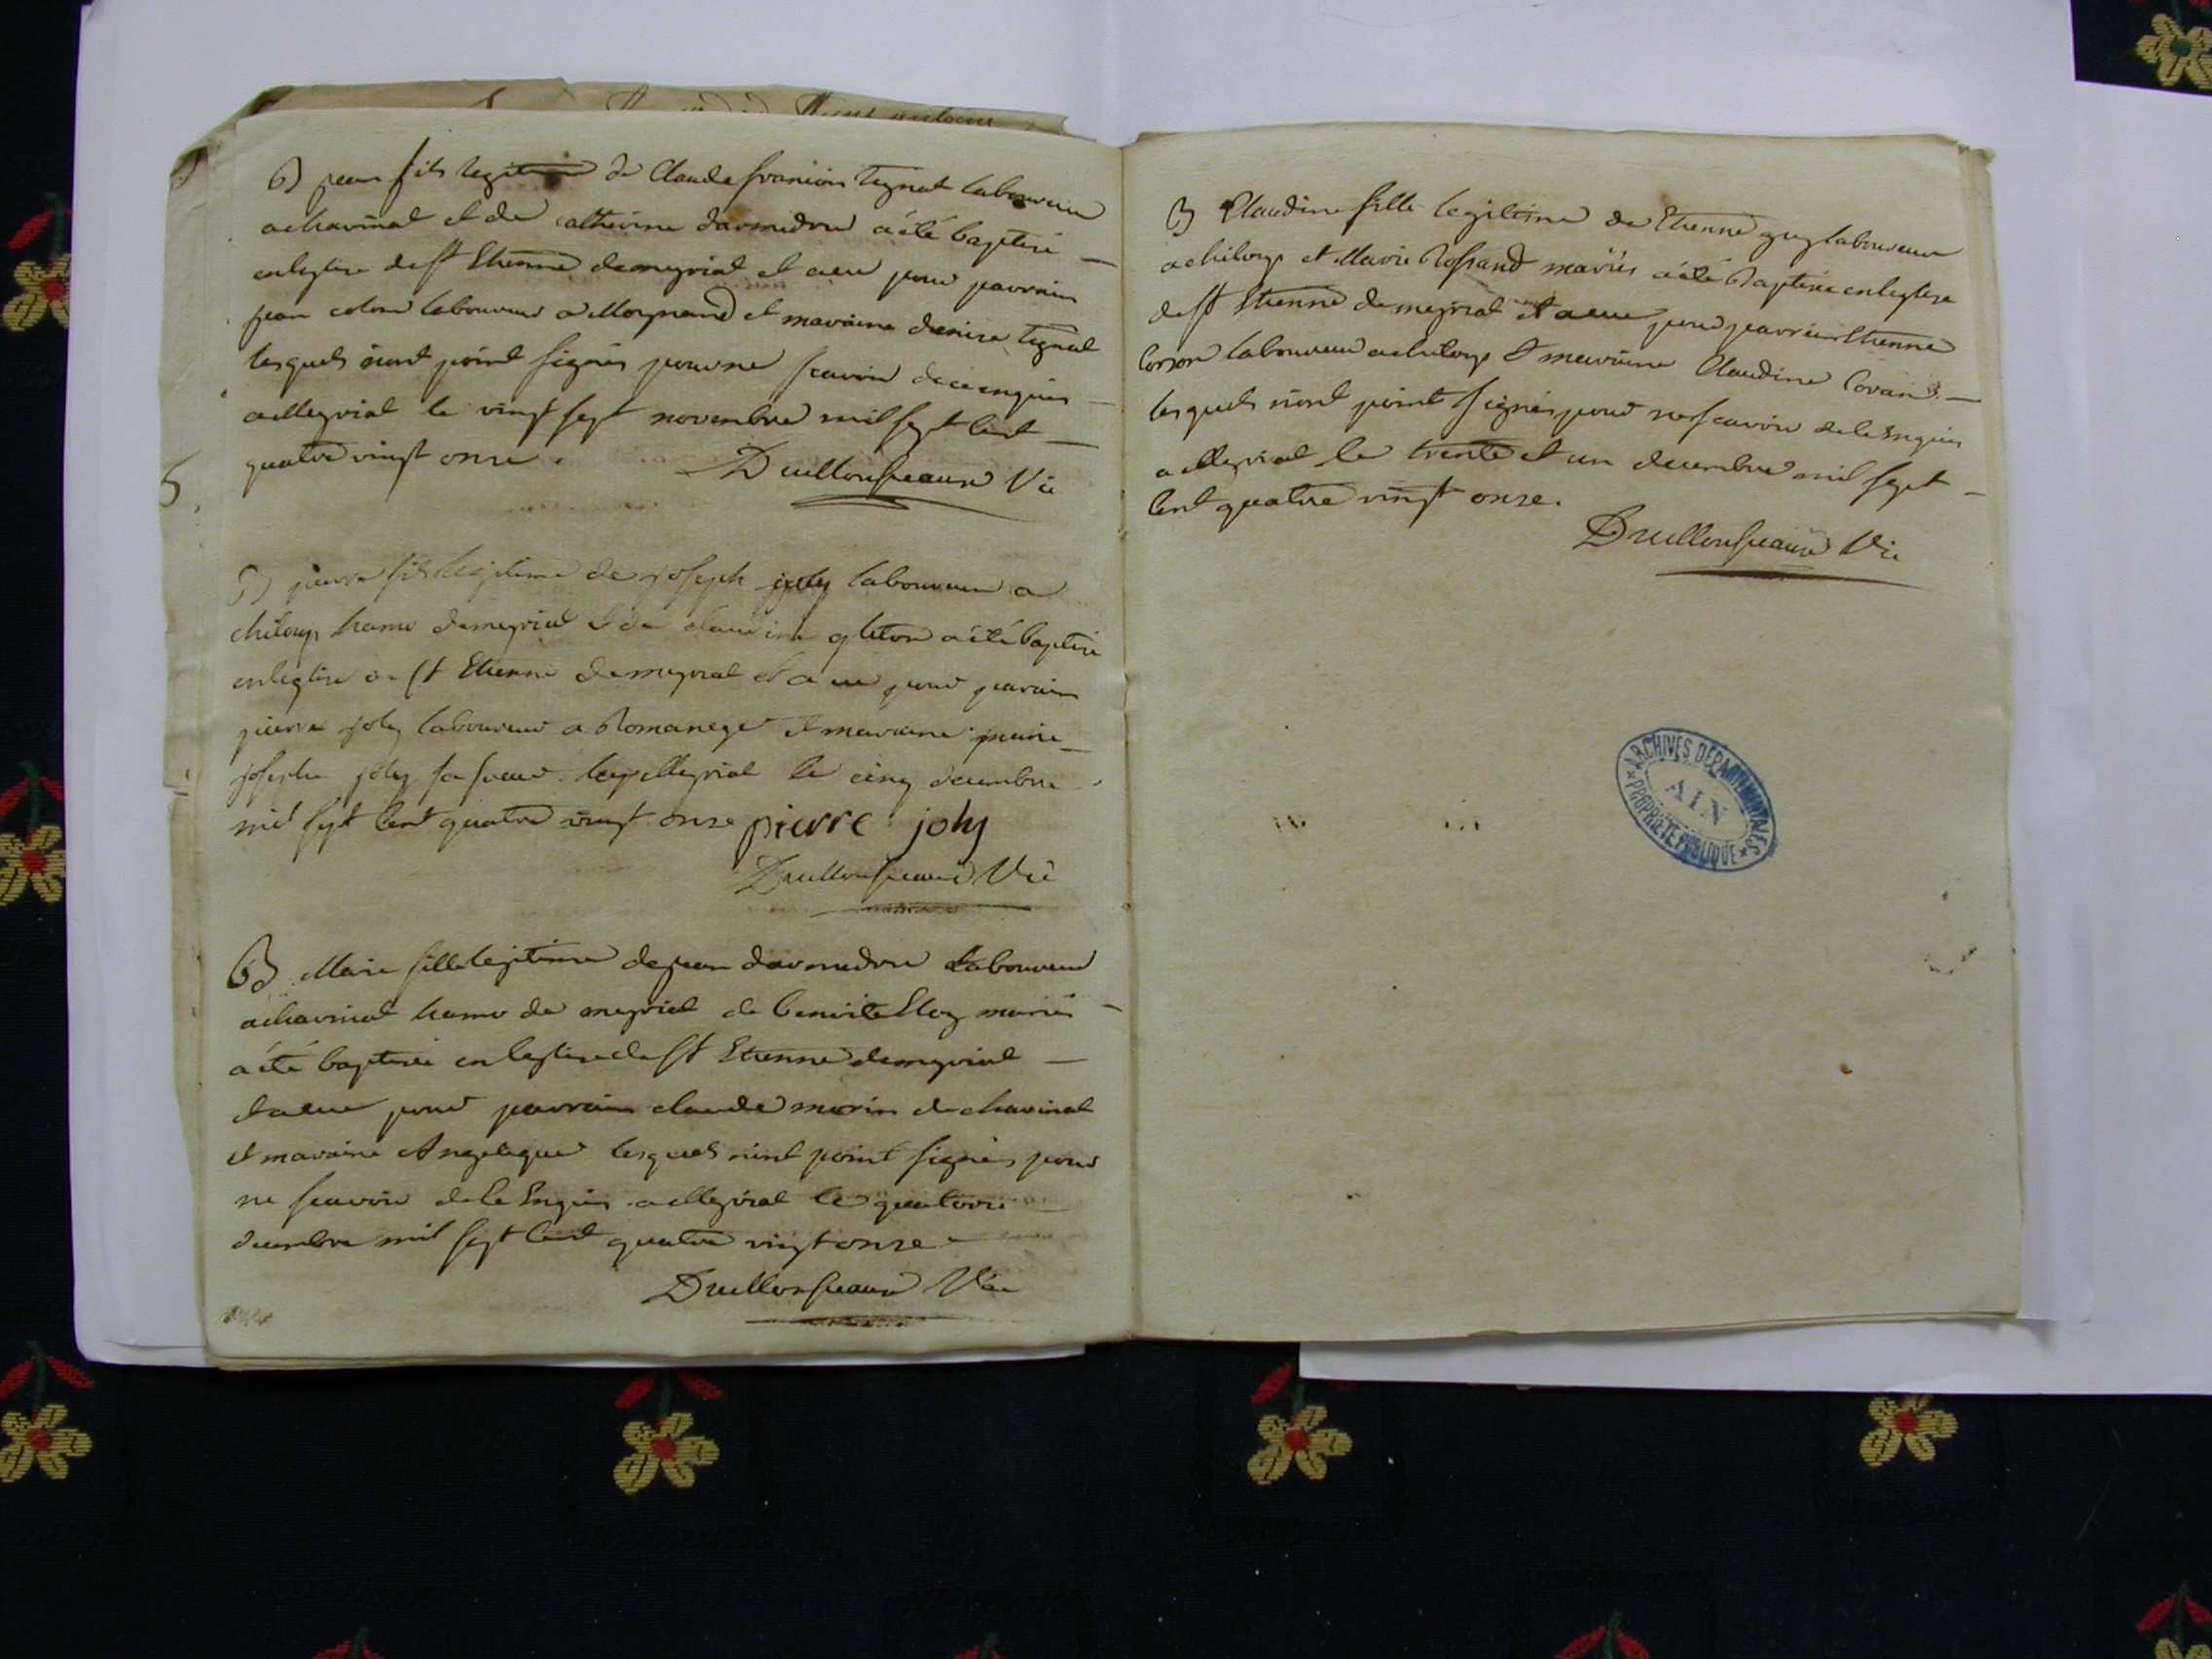 B) jean fils legitime de Claude francois tignat laboureur
a chavinat et de catherine darmedru a été baptisé
en leglise de st Etienne de meyriat et a eu pour parrain
jean colon laboureur a Moynand et maraine denise tignat
lesquels n'ont point signés pour ne scavoir de ce enquis
a Meyriat le vingt sept novembre mil sept cent
quatre vingt onse. Duillonsseaux Vic
B) pierre fils legitime de joseph joly laboureur a
chiloup hamo de meyriat et de claudine a été baptisé
en leglise de st Etienne de meyriat et a eu pour parain
pierre joly laboureur a Romanege et maraine marie
josephe joly sa soeur Meyriat le cinq decembre
mil sept cent quatre vingt onse pierre joly
Duillonsseaux Vic
B) Marie fille legitime de jean darmedru Laboureur
a chavinat hamo de meyriat de benoite Eloy mariés
a été baptisée en leglise de st Etienne de meyriat
et a eu pour parrain claude morin de chavinat
et maraine Angelique lesquels n'ont point signés pour
ne scavoir de ce Enquis a Meyriat le quatorse
decembre mil sept cent quatre vingt onse
Duillonsseaux Vic
B) Claudine fille legitime de Etienne guy laboureur
a chiloup et Marie Rossand mariés a été Baptisée en leglise
de st Etienne de meyriat et a eu pour parrain Etienne
Corson laboureur a chiloup et maraine Claudine
lesquels n'ont point signés pour ne scavoir de ce Enquis
a Meyriat le trente et un decembre mil sept
Cent quatre vingt onse.
Duillonsseaux Vic
ARCHIVES DÉPARTEMENTALES
AIN
PROPRIÉTÉ PUBLIQUE